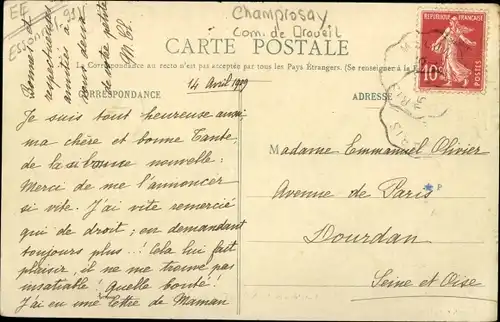 EE
Essonne (91)
Champrosay
Com. de Draveil
CARTE POSTALE
La Correspondance au recto n'est pas acceptée par tous les Pays Étrangers. (Se renseigner à la
14 Avril 1909
CORRESPONDANCE
ADRESSE
10c
POSTES
Bonne et
respectueuse
amitiés à
vous deux
de votre petite
M. Cl.
Je suis tout heureuse aussi
ma chère et bonne Tante,
de la si bonne nouvelle.
Merci de me l'annoncer
si vite. J'ai vite remercié
qui de droit ; en demandant
toujours plus..! Cela lui fait
plaisir, il ne me trouve pas
insatiable ! Quelle bonté !
J'ai eu une lettre de Maman
Madame Emmanuel Olivier
Avenue de Paris
Dourdan
Seine et Oise